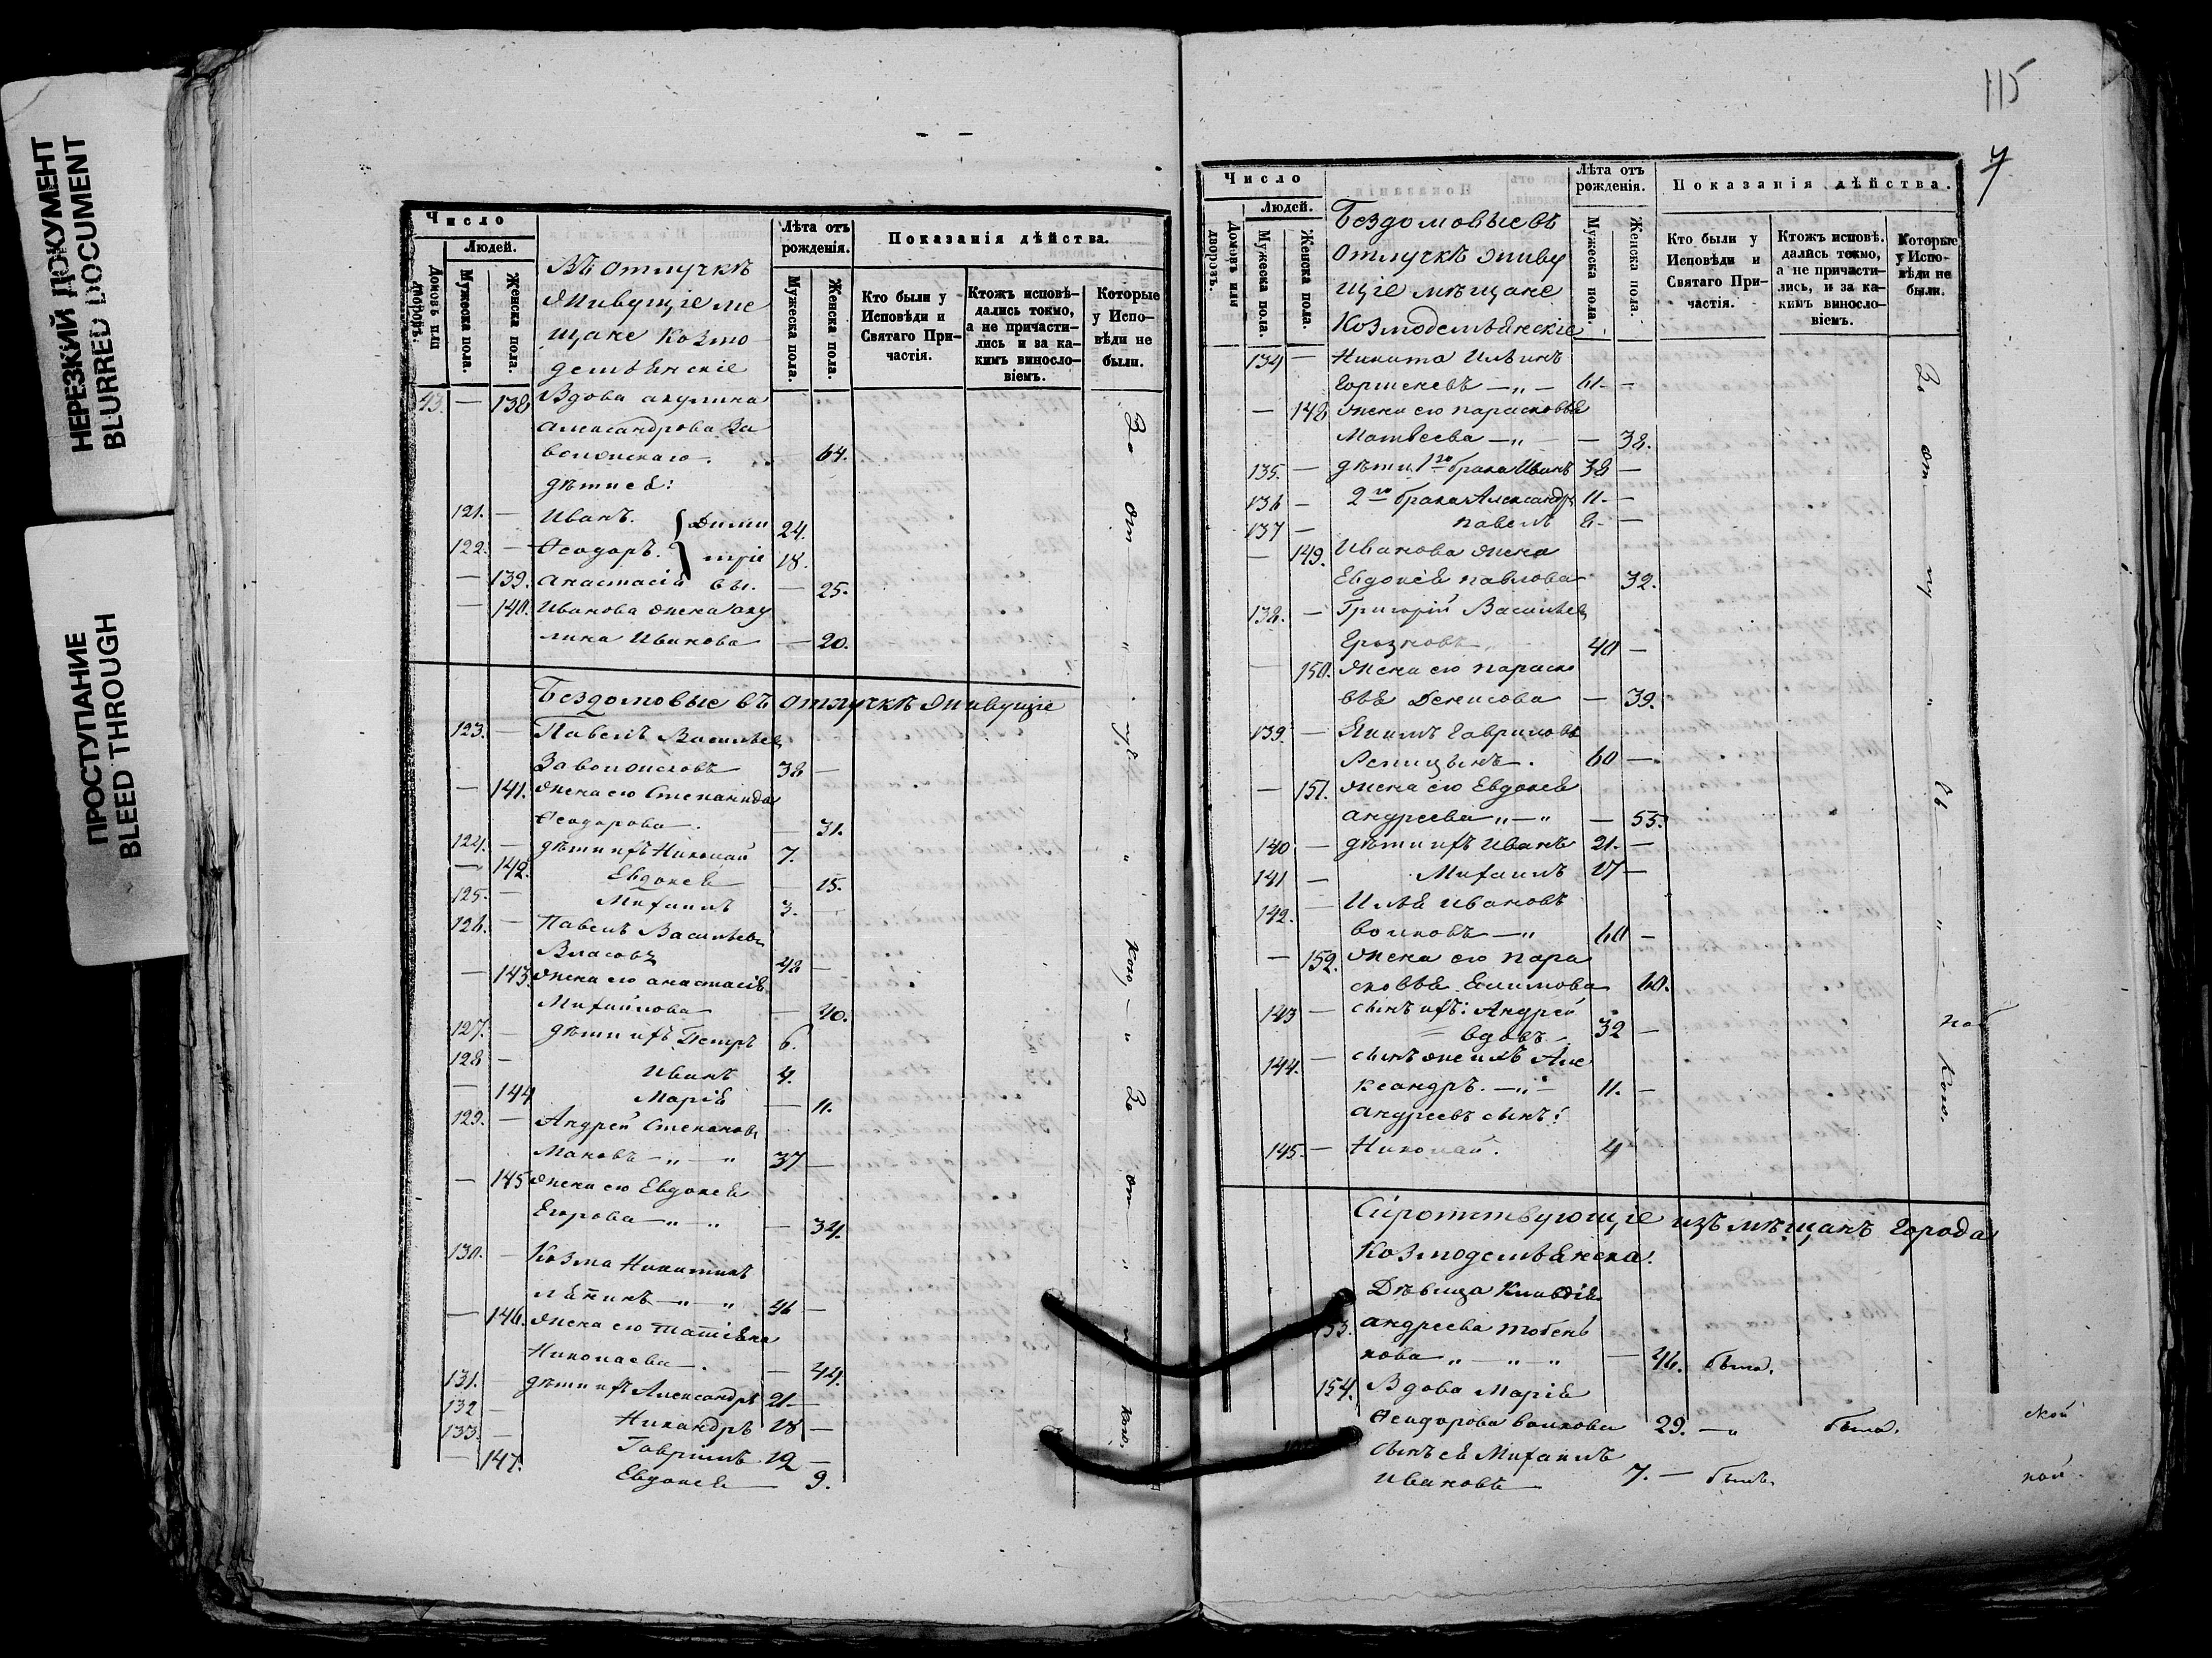 НЕРЕЗКИЙ ДОКУМЕНТ
BLURRED DOCUMENT
ПРОСТУПАНИЕ
BLEED THROUGH
Число
Людей.
Домовъ или дворовъ.
Мужеска пола.
Женска пола.
Въ отлучкѣ
живущіе ме
щане Козмо
демьянскіе
Лѣта отъ рожденія.
Мужеска пола.
Женска пола.
Показанія дѣйства.
Кто были у Исповѣди и Святаго Причастія.
Ктожъ исповѣдались токмо, а не причастились и за какимъ виносло­віемъ.
Которые у Исповѣди не были.
43. — 138 Вдова акулина
александрова За
волжскаго. 64.
дѣти ея:
121. — Иванъ. Дими 24.
122. — Ѳеодоръ. тріе 18.
— 139. анастасія вы. — 25.
— 140. Иванова жена аку
лина Иванова — 20.
Бездомовые въ отлучкѣ живущіе
123. — Павелъ Васильевъ
Заволжсковъ 38 —
— 141. жена его Степанида
Ѳеодорова. — 31.
124. — дѣти ихъ Николай 7.
— 142. Евдокея — 15.
125. — Михаилъ 3. —
126. — Павелъ Васильевъ
Власовъ 48 —
— 143. жена его анастасія
Михайлова — 40.
127. — дѣти ихъ Петръ 6.
128 — Иванъ 4.
— 144 Марія — 11.
129. — Андрей Степановъ
Маковъ — „ — „ 37 —
— 145 жена его Евдокея
Егорова — „ — „ — 34.
130. — Козма Никитинъ
лянинъ — „ — „ 46 —
— 146. жена его татіяна
Николаева. — 44.
131. — дѣти ихъ Александръ 21. —
132 — Никандръ 18 —
133. — Гавріилъ 12 —
— 147. Евдокея 9.
За от „ лу „ кою — „ За от „ кою.
115
7
Число
Людей.
Домовъ или дворовъ.
Мужеска пола.
Женска пола.
Бездомовые въ
отлучкѣ живу
щіе мѣщане
Козмодемьянскіе
Лѣта отъ рожденія.
Мужеска пола.
Женска пола.
Показанія дѣйства.
Кто были у Исповѣди и Святаго Причастія.
Ктожъ исповѣдались токмо, а не причастились, и за какимъ винословіемъ.
Которые у Исповѣди не были.
134 — Никита Ильинъ
Горшеневъ — „ — 61. —
— 148 жена его парасковья
Матвеева — „ — — 38.
135. — дѣти 1го брака Иванъ 38 —
136 — 2го брака Александръ 11. —
137 — павелъ 8. —
— 149. Иванова жена
Евдокея павлова 32.
138. — Григорій Васильевъ
40 —
— 150. жена его параско
вья Денисова — 39.
139. — Якимъ гавриловъ
Репицынъ. 60 —
— 151. жена его Евдокея
андреева „ — „ — 55.
140 — дѣти ихъ Иванъ 21. —
141 — Михаилъ 17 —
142. — Илья Ивановъ
волковъ — „ 60 —
— 152. жена его пара
сковья Ефимова 60.
143 — сынъ ихъ: Андрей
вдовъ. 32 —
144. — сынъ Але
ксандръ. — „ — 11. —
андреевъ сынъ:
145. — Николай. 4
За от лу „ „ кою.
Сиротствующіе изъ мѣщанъ города
Козмодемьянска.
Дѣвица Клавдія
53. андреева
кова „ — „ — „ — 46. была.
154. Вдова Марія
Ѳеодорова волкова 29. — „ была.
сынъ ея Михаилъ
Ивановъ 7. — былъ.
ской
кой